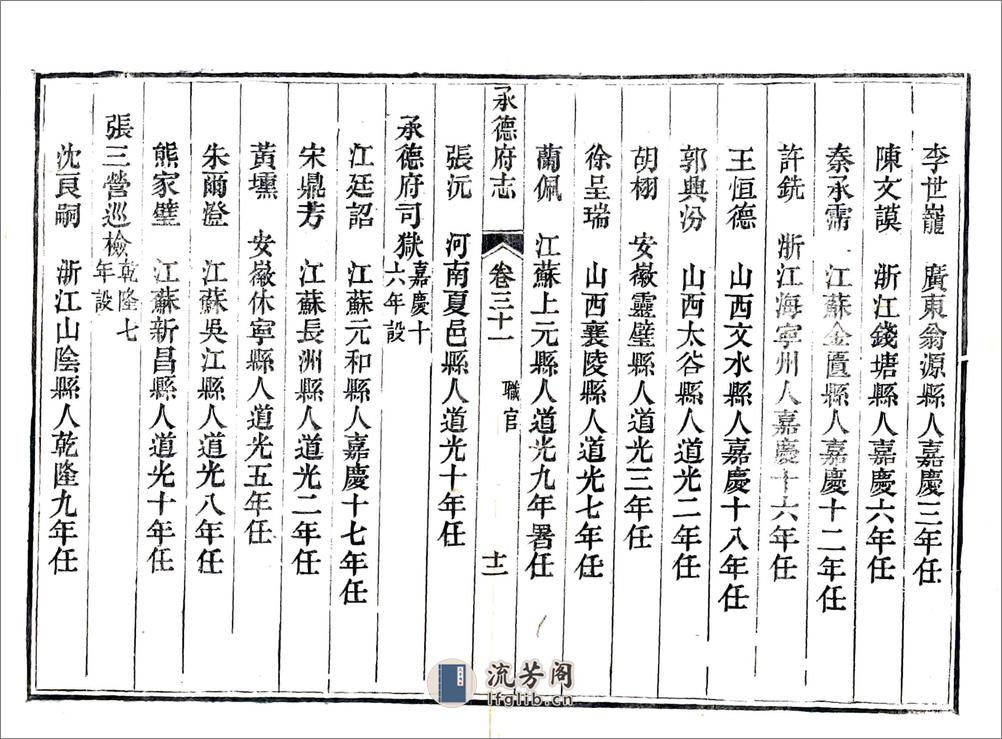 李世巃 廣東翁源縣人嘉慶三年任
陳文謨 浙江錢塘縣人嘉慶六年任
秦承霈 江蘇金匱縣人嘉慶十二年任
許銑 浙江海寧州人嘉慶十六年任
王恒德 山西文水縣人嘉慶十八年任
郭興汾 山西太谷縣人道光二年任
胡栩 安徽靈璧縣人道光三年任
徐呈瑞 山西襄陵縣人道光七年任
蘭佩 江蘇上元縣人道光九年署任
承德府志 卷三十一 職官 十二
張沅 河南夏邑縣人道光十年任
承德府司獄 嘉慶十六年設
江廷詔 江蘇元和縣人嘉慶十七年任
宋鼎芳 江蘇長洲縣人道光二年任
黃壎 安徽休寧縣人道光五年任
朱爾澄 江蘇吳江縣人道光八年任
熊家璧 江蘇新昌縣人道光十年任
張三營巡檢 乾隆七年設
沈良嗣 浙江山陰縣人乾隆九年任
流芳阁
lfglib.cn